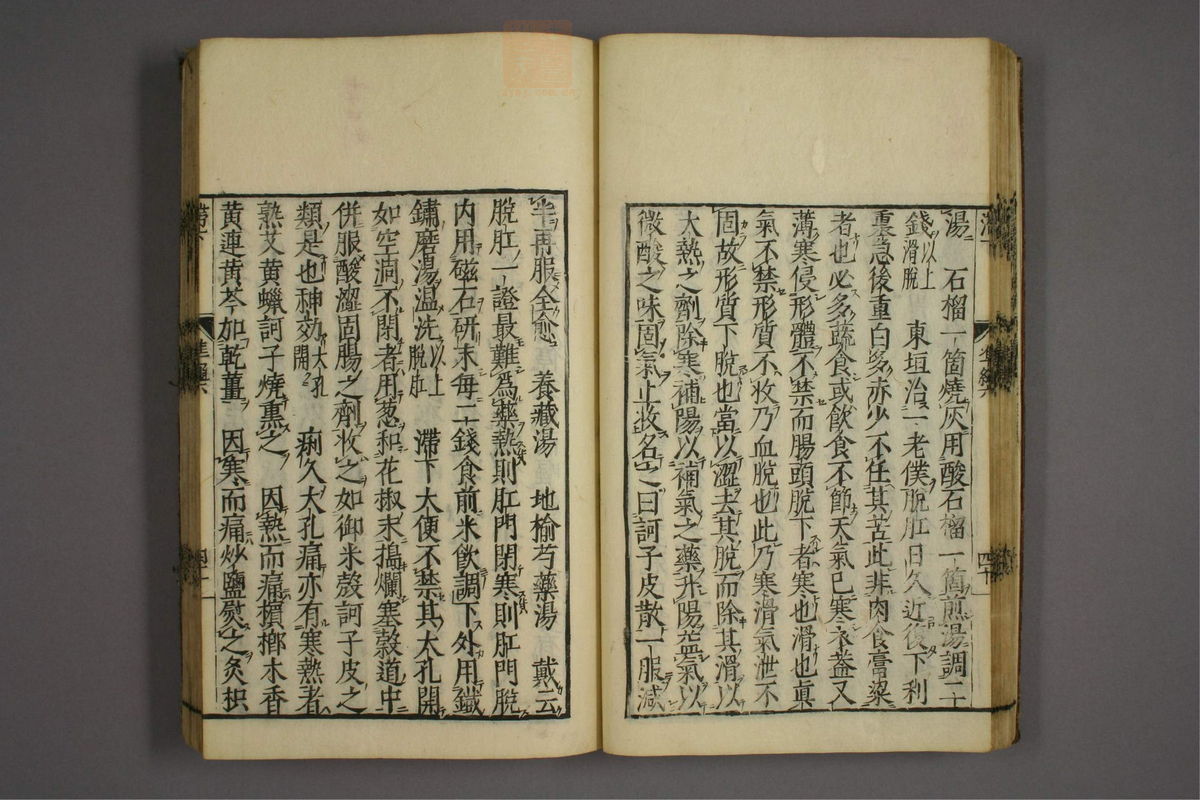 湯　石榴一箇燒灰用酸石榴一箇煎湯調二
錢以上滑脫　東垣治一老僕脫肛日久近復下利
裏急後重白多赤少不任其苦此非肉食膏粱
者也必多蔬食或飲食不節天氣已寒衣蓋又
薄寒侵形體不禁而腸頭脫下者寒也滑也眞
氣不禁形質不收乃血脫也此乃寒滑氣泄不
固故形質下脫也當以澀去其脫而除其滑以
大熱之劑除寒補陽以補氣之藥升陽益氣以
微酸之味固氣上收名之曰訶子皮散一服減
半再服全愈　養藏湯　地榆芍藥湯　戴云
脫肛一證最難爲藥熱則肛門閉寒則肛門脫
内用磁石研末每二錢食前米飲調下外用鐵
鏽磨湯温洗以上脫肛　滯下大便不禁其大孔開
如空洞不閉者用葱和花椒末搗爛塞穀道中
併服酸澀固腸之劑收之如御米殼訶子皮之
類是也神効大孔開　痢久大孔痛亦有寒熱者
熟艾黄蠟訶子燒熏之　因熱而痛檳榔木香
黄連黄芩加乾薑　因寒而痛炒鹽熨之炙枳